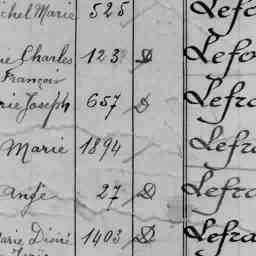 chel Marie 525 Lefo
ie Charles 123 D Lefo
François
rie Joseph 657 D Lefra
Marie 1894 Lefra
ange 27 D Lefra
arie Désiré 1403 D Lefra